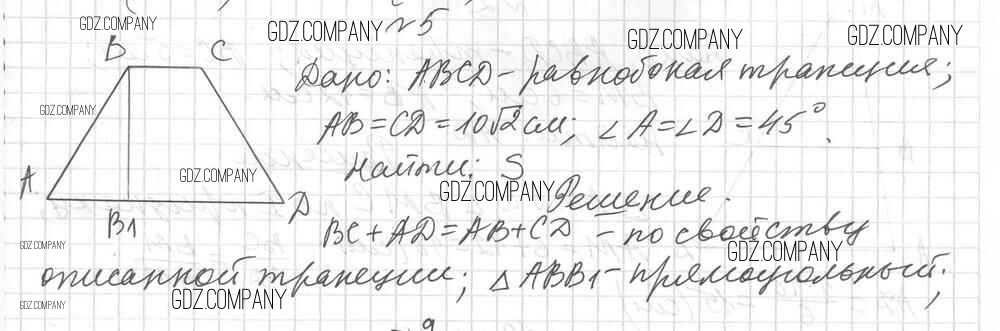 GDZ.COMPANY
GDZ.COMPANY
№5
GDZ.COMPANY
GDZ.COMPANY
B C
Дано: ABCD - равнобокая трапеция;
GDZ.COMPANY
AB = CD = 10√2 см; ∠A = ∠D = 45°.
Найти: S
A
GDZ.COMPANY
GDZ.COMPANY
Решение.
B1
D
BC + AD = AB + CD - по свойству
GDZ.COMPANY
GDZ.COMPANY
описанной трапеции; △ABB1 - прямоугольный;
GDZ.COMPANY
GDZ.COMPANY